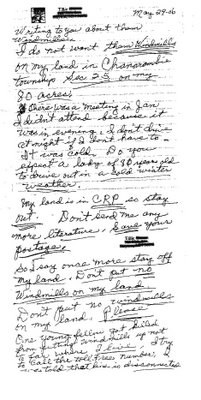 May 29-06
Writing to you about them
Windmills
I do not want them Windmills
on my land in Chanarambie
township Sec 25 on my
80 acres.
There was a meeting in Jan
I didnt attend because it
was in evening, I don't drive
at night if I don't have to -
It was cold. Do you
expect a lady of 80 year old
to drive out in a cold winter
weather.
My land is in CRP so stay
out. Don't send me any
more literature, save your
postage.
So I say once more stay off
my land. Dont put no
Windmills on my land.
Dont put no windmills
on my land, Please
One young fellow got killed
from putting windmills up not
to far where I live. I try
to call the toll free number, I
was told that line is disconnected